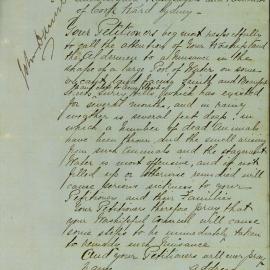 of Cook Ward Sydney
Your Petitioners beg most respectfully
to call the attention of Your Worship and
the Aldermen to a nuisance in the
shape of a large Pool of Water on some
vacant land facing and
Street, Surry Hills, which has existed
for several months, and in rainy
weather is several feet deep: in
which a number of dead animals
have been thrown and the smell arising
from such animals and the stagnant
Water is most offensive, and if not
filled up or otherwise remedied will
cause serious sickness to your
Petitioners and their Families
Your Petitioners therefore pray that
your Worshipful Council will cause
some steps to be immediately taken
to remedy such Nuisance
And your Petitioners will ever pray
John